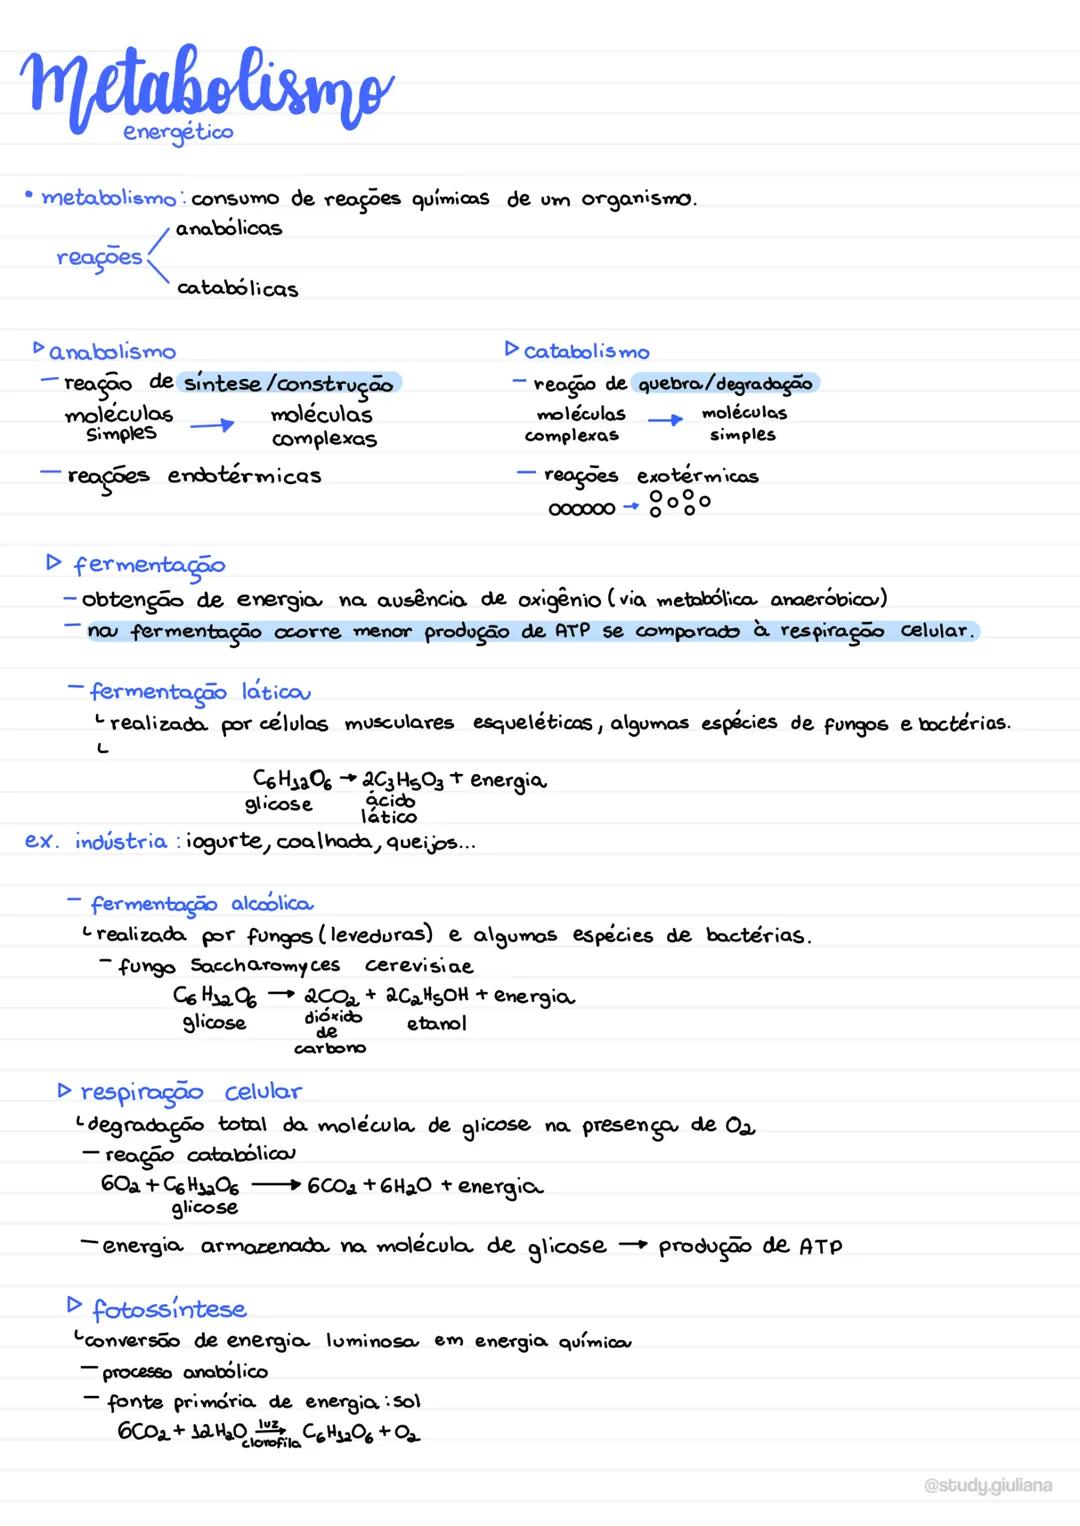 Metabolismo
energético
• metabolismo: consumo de reações químicas de um organismo.
anabólicas
reações
catabólicas
▷ anabolismo
- reação de síntese/construção
moléculas simples → moléculas complexas
- reações endotérmicas
▷ catabolismo
- reação de quebra/degradação
moléculas complexas → moléculas simples
- reações exotérmicas
▷ fermentação
- obtenção de energia na ausência de oxigênio (via metabólica anaeróbica)
- na fermentação ocorre menor produção de ATP se comparado à respiração celular.
- fermentação lática
↳ realizada por células musculares esqueléticas, algumas espécies de fungos e bactérias.
C6H12O6 → 2C3H5O3 + energia
glicose ácido lático
ex. indústria: iogurte, coalhada, queijos...
- fermentação alcoólica
↳ realizada por fungos (leveduras) e algumas espécies de bactérias.
- fungo Saccharomyces cerevisiae
C6H12O6 → 2CO2 + 2C2H5OH + energia
glicose dióxido de carbono etanol
▷ respiração celular
↳ degradação total da molécula de glicose na presença de O2
- reação catabólica
6O2 + C6H12O6 → 6CO2 + 6H2O + energia
glicose
- energia armazenada na molécula de glicose → produção de ATP
▷ fotossíntese
↳ conversão de energia luminosa em energia química
- processo anabólico
- fonte primária de energia: sol
6CO2 + 12H2O luz → clorofila C6H12O6 + O2
@study.giuliana